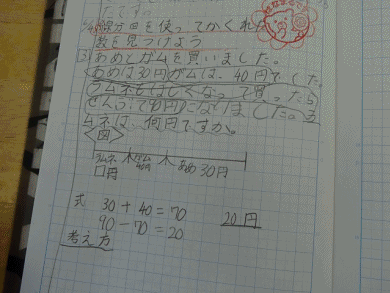 たてです。
線分図を使ってかくれた
数を見つけよう
③あめとガムを買いました。
あめは30円ガムは、40円でした。
ラムネもほしくなって買ったら
ぜんぶで90円になりました。ラ
ムネは、何円ですか。
<図>
ラムネ ガム あめ30円
□円 40円
式 30+40=70
90-70=20 20円
考え方